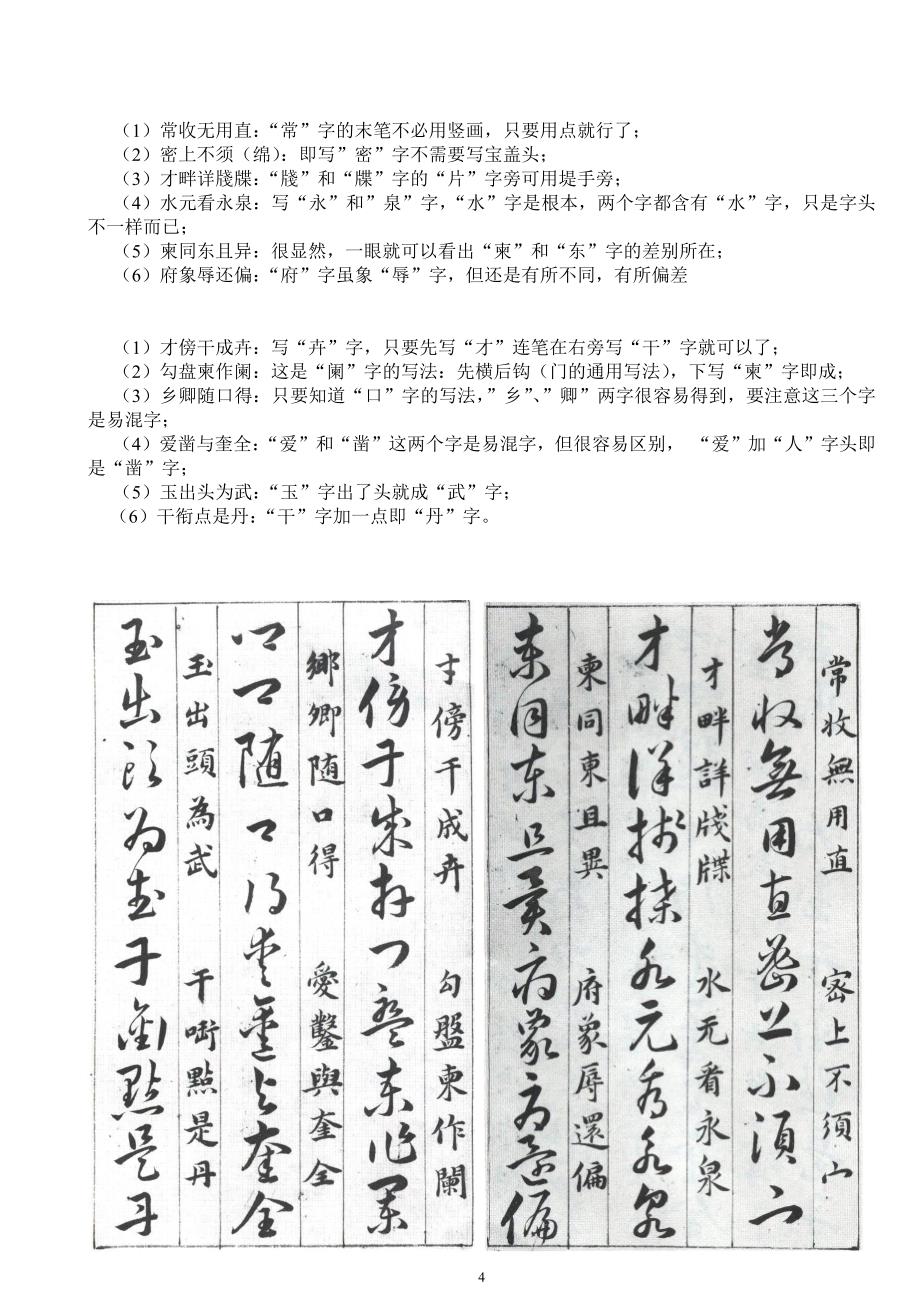 （1）常收无用直：“常”字的末笔不必用竖画，只要用点就行了；
（2）密上不须（绵）：即写”密”字不需要写宝盖头；
（3）才畔详牋牒：“牋”和“牒”字的“片”字旁可用堤手旁；
（4）水元看永泉：写“永”和”泉”字，“水”字是根本，两个字都含有“水”字，只是字头
不一样而已；
（5）柬同东且异：很显然，一眼就可以看出“柬”和“东”字的差别所在；
（6）府象辱还偏：“府”字虽象“辱”字，但还是有所不同，有所偏差
（1）才傍干成卉：写“卉”字，只要先写“才”连笔在右旁写“干”字就可以了；
（2）勾盘柬作阑：这是“阑”字的写法：先横后钩（门的通用写法），下写“柬”字即成；
（3）乡卿随口得：只要知道“口”字的写法，”乡”、”卿”两字很容易得到，要注意这三个字
是易混字；
（4）爱凿与奎全：“爱”和“凿”这两个字是易混字，但很容易区别， “爱”加“人”字头即
是“凿”字；
（5）玉出头为武：“玉”字出了头就成“武”字；
（6）干衔点是丹：“干”字加一点即“丹”字。
常收無用直 密上不须宀
常收無用直密上不须宀
才畔詳牋牒 水元看永泉
才畔詳牋牒水元看永泉
柬同東且異 府象辱還偏
柬同東且異府象辱還偏
才傍干成卉 勾盤柬作闌
才傍干成卉勾盤柬作闌
鄉卿随口得 愛鑿與奎全
鄉卿随口得愛鑿與奎全
玉出頭為武 干衔點是丹
玉出頭為武干衔點是丹
4